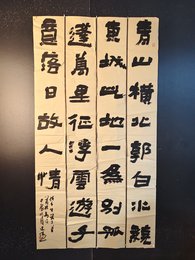 青山橫北郭白水繞
東城此地一為別孤
蓬萬里征浮雲遊子
意落日故人情